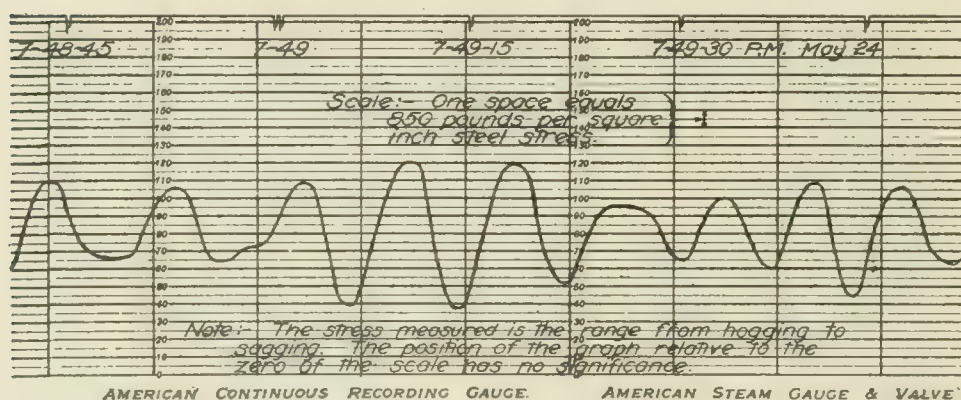 7-48-45 7-49 7-49-15 7-49-30 P.M. May 24
Scale:- One space equals
850 pounds per square
inch steel stress.
200 200
190 190
180 180
170 170
160 160
150 150
140 140
130 130
120 120
110 110
100 100
90 90
80 80
70 70
60 60
50 50
40 40
30 30
20 20
10 10
0 0
Note:- The stress measured is the range from hogging to
sagging. The position of the graph relative to the
zero of the scale has no significance.
AMERICAN CONTINUOUS RECORDING GAUGE. AMERICAN STEAM GAUGE & VALVE